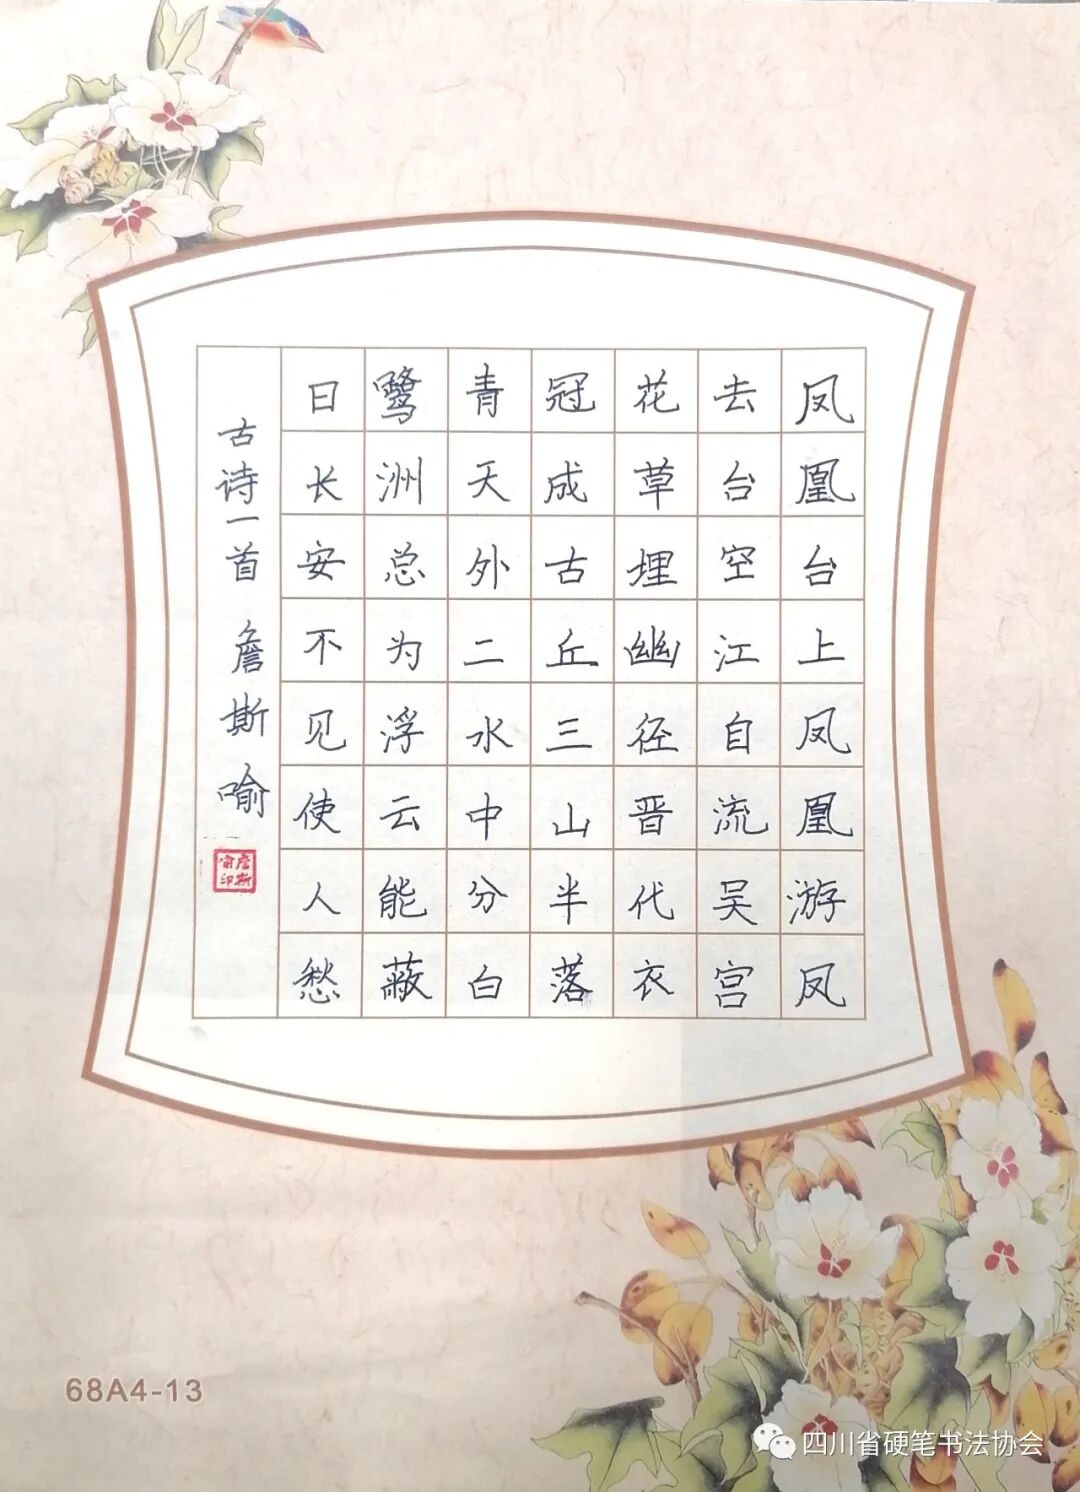 凤凰台上凤凰游凤
去台空江自流吴宫
花草埋幽径晋代衣
冠成古丘三山半落
青天外二水中分白
鹭洲总为浮云能蔽
日长安不见使人愁
古诗一首 詹斯喻
詹斯喻印
68A4-13
四川省硬笔书法协会